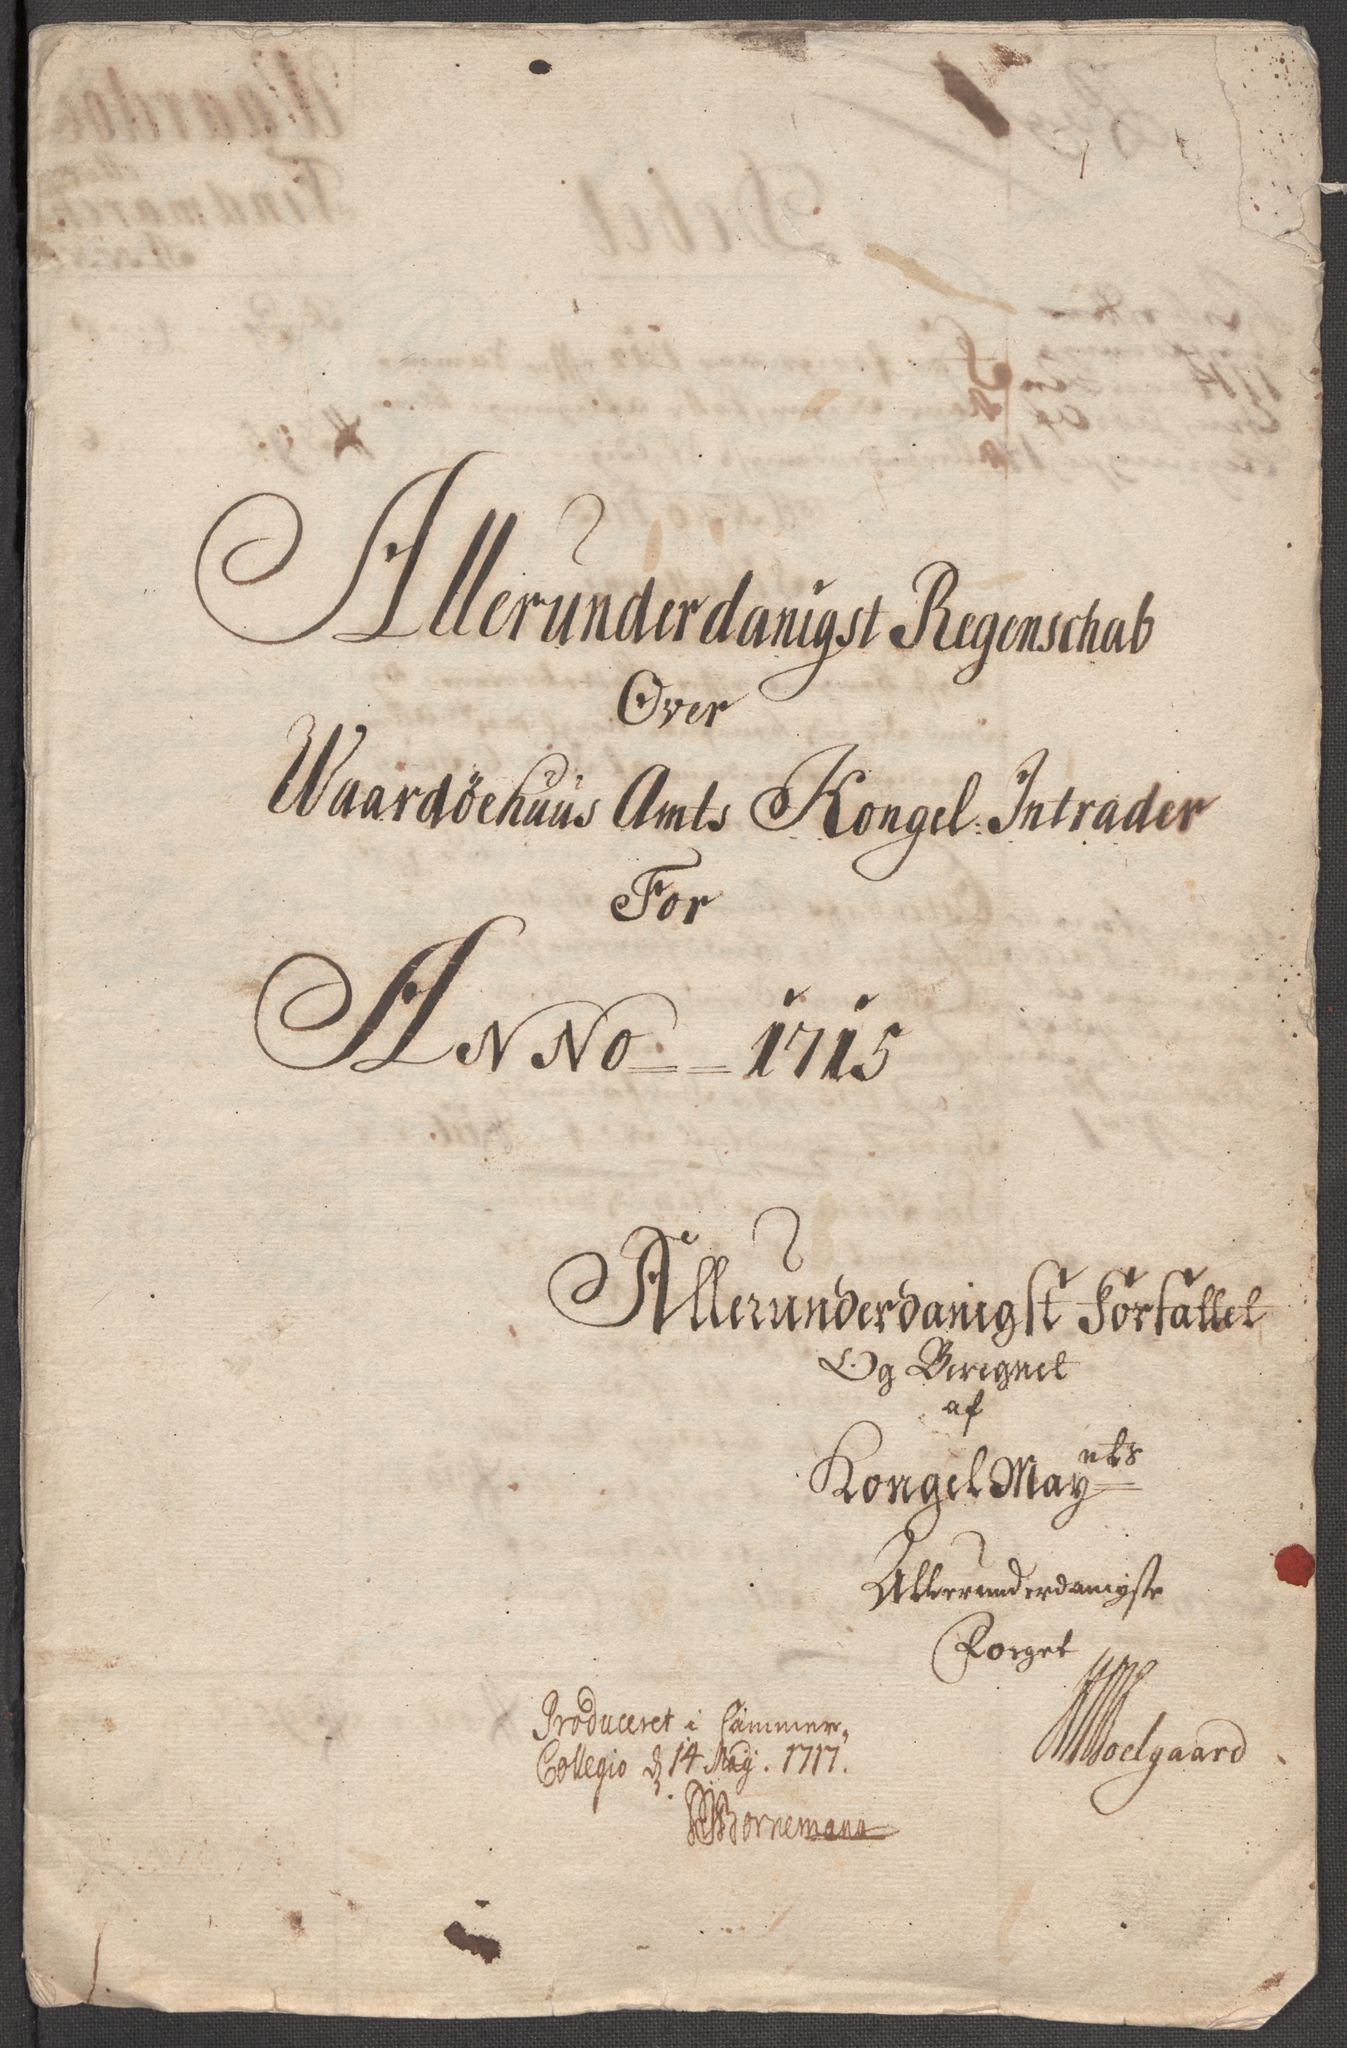 Allerunderdanigst Regenschab
Over
Waardöehuus Amts Kongel: Intrader
For
ANNo 1715
Allerunderdanigst forfattet
Og Beregnet
af
Kongel May<sup>nts</sup>
Allerunderdanigste
Produceret i Cammer,
Collegio d 14 Maÿ. 1717.
Bornemann